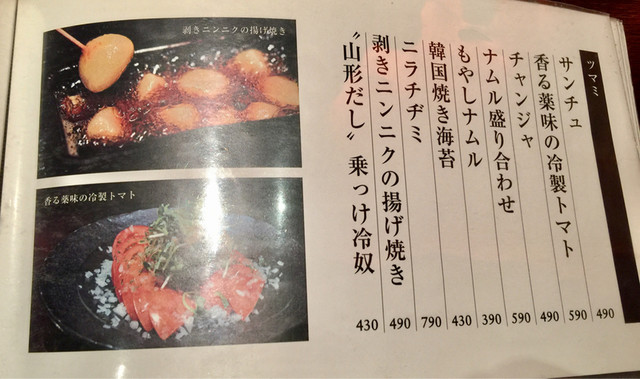 ツマミ
サンチュ 490
香る薬味の冷製トマト 590
チャンジャ 490
ナムル盛り合わせ 590
もやしナムル 390
韓国焼き海苔 430
ニラチヂミ 790
剥きニンニクの揚げ焼き 490
〝山形だし〟乗っけ冷奴 430
剥きニンニクの揚げ焼き
香る薬味の冷製トマト